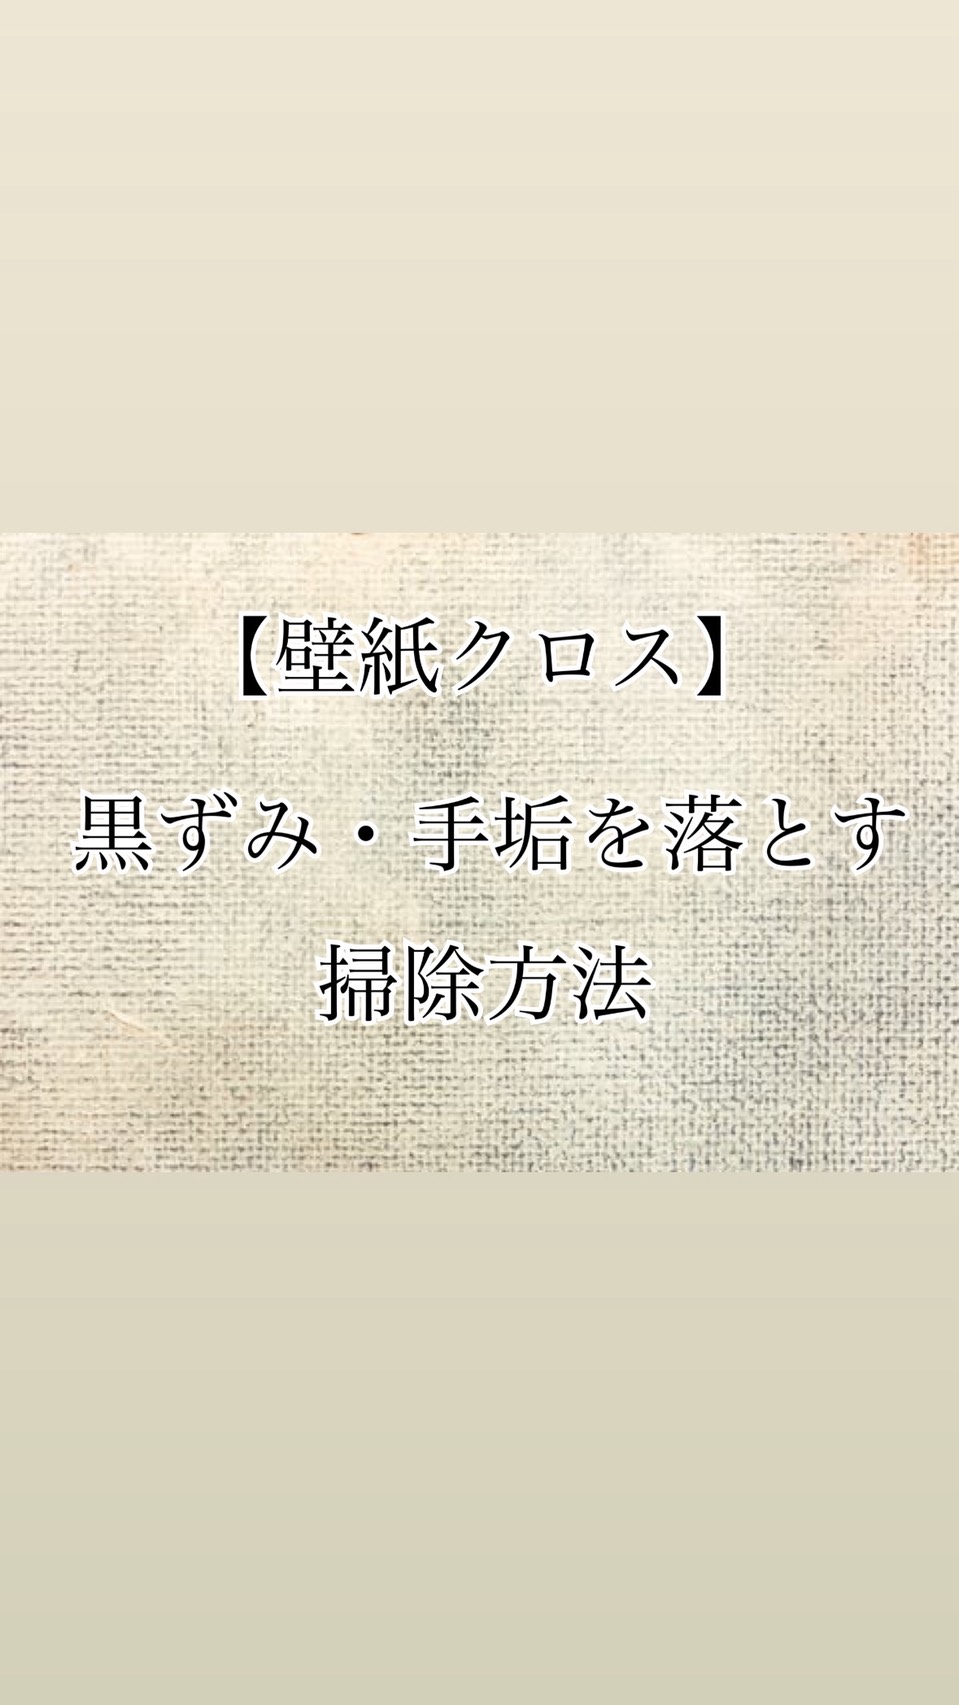 【壁紙クロス】
黒ずみ・手垢を落とす
掃除方法